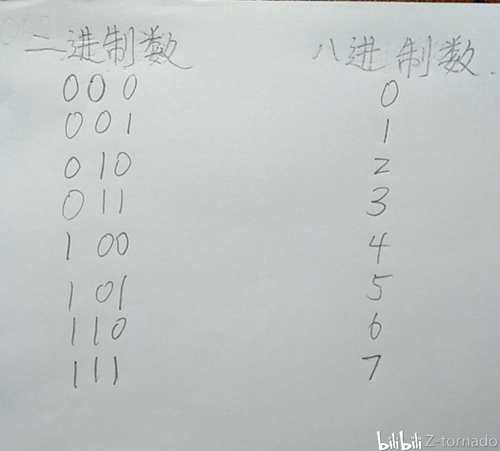 二进制数 八进制数.
000 0
001 1
010 2
011 3
100 4
101 5
110 6
111 7
bilibili Z-tornado